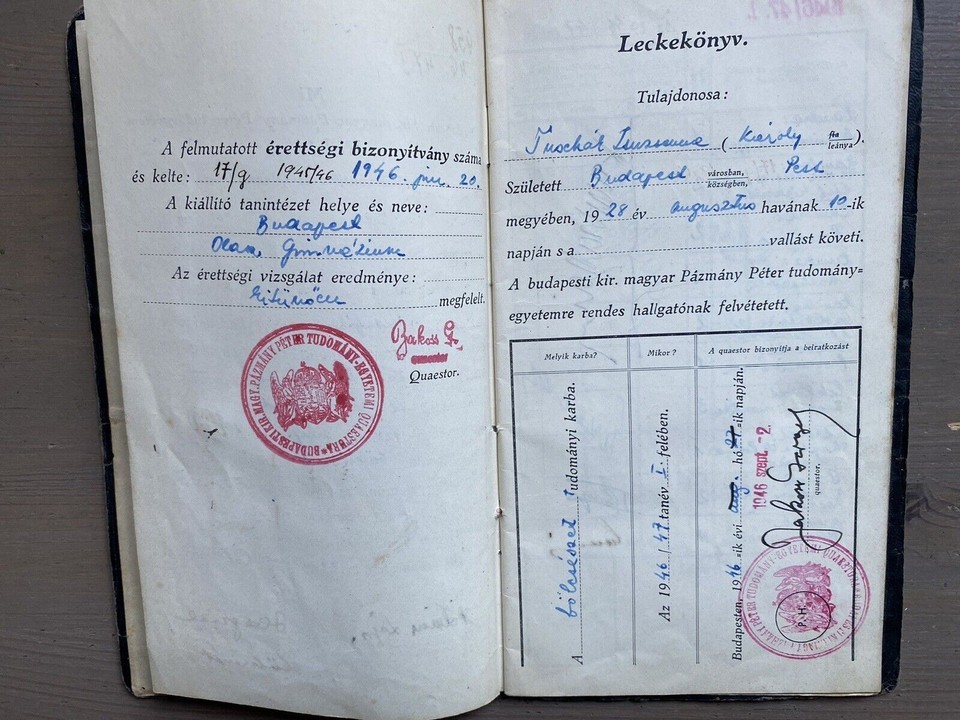 A felmutatott érettségi bizonyítvány száma
és kelte: 17/g. 1945/46 1946. jun. 20.
A kiállító tanintézet helye és neve:
Budapest
Olasz Gimnázium
Az érettségi vizsgálat eredménye:
Kitünően megfelelt.
Bakos G.
Quaestor.
BUDAPESTI KIR. MAGY. PÁZMÁNY PÉTER TUDOMÁNY-EGYETEMI QUAESTURA
Leckekönyv.
Tulajdonosa:
Zsuzsanna (Károly fia leánya).
Született Budapest városban, községben, Pest
megyében, 1928 év augusztus havának 10-ik
napján s a vallást követi.
A budapesti kir. magyar Pázmány Péter tudomány=
egyetemre rendes hallgatónak felvétetett.
Melyik karba? Mikor? A quaestor bizonyítja a beiratkozást
A bölcsészet tudományi karba.
Az 1946/47 tanév I. felében.
Budapesten, 1946=ik évi aug. hó 27=ik napján.
1946 szept -2.
quaestor.
P. H.